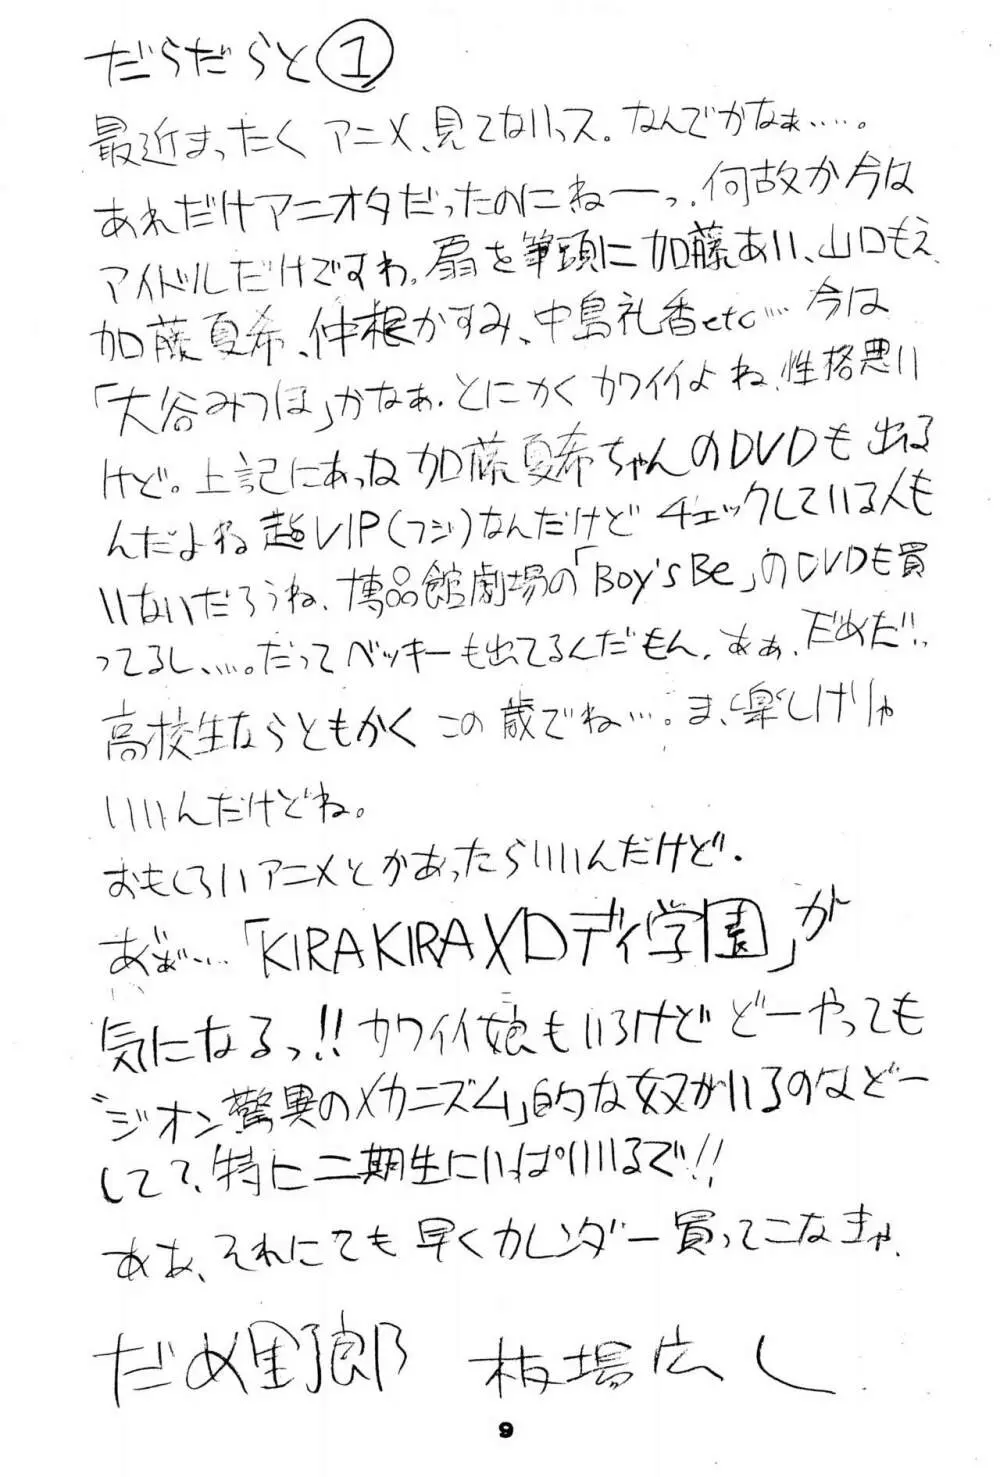 だらだらと①
最近まったく アニメ、見てないっス。なんでかなぁ……。
あれだけアニオタだったのにねーっ。何故か今は
アイドルだけですわ。扇を筆頭に加藤あい、山口もえ、
加藤夏希、仲根かすみ、中島礼香etc… 今は
「大谷みつほ」かなぁ。とにかく カワイイよ ね、性格悪い
けど。上記にあった加藤夏希ちゃんのDVDも 出る
んだよね 超VIP(フジ)なんだけど チェックしている人も
いないだろうね、博品館劇場の「Boy's Be」のDVDも買
ってるし、…。だって ベッキーも出てるんだもん。あぁ、だめだ!!
高校生ならともかく この 歳でね…。ま、楽しけりゃ
いいんだけどね。
おもしろいアニメとかあったらいいんだけど。
あぁぁ…「KIRAKIRAメロディ学園」が
気になるっ!! カワイイ娘もいるけど どーやっても
"ジオン驚異のメカニズム」的な奴がいるのはどー
して?、特に二期生にいっぱいいるで!!
ああ、それにても 早くカレンダー買ってこなきゃ、
だめ野郎 板場広し
9